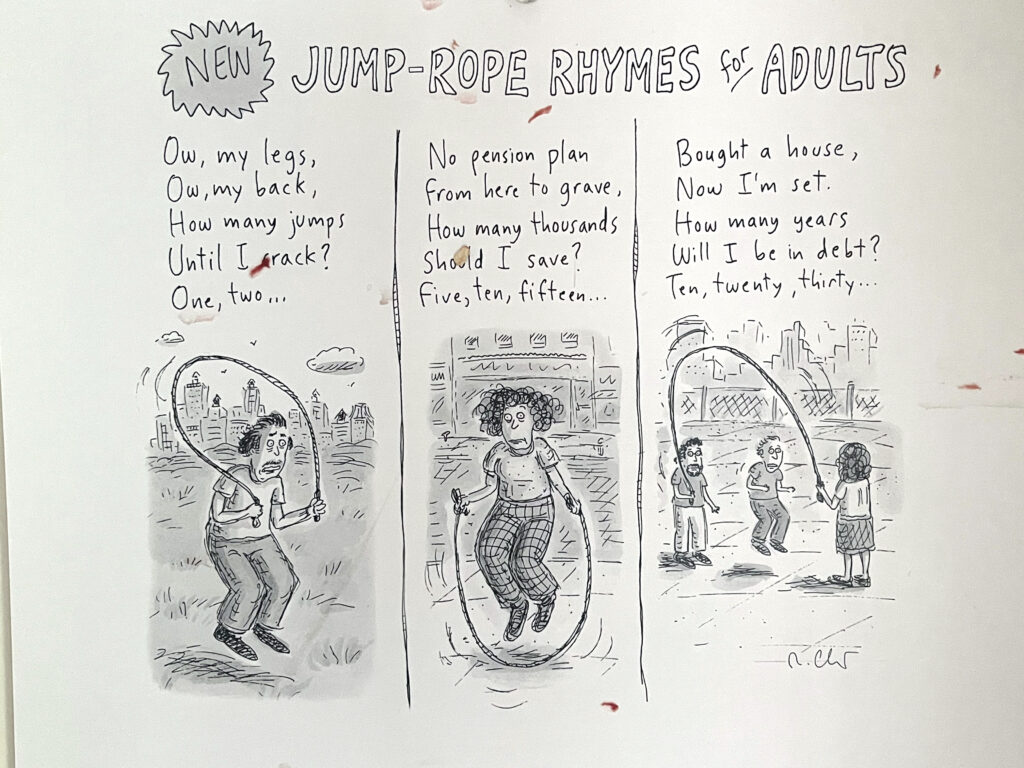 NEW JUMP-ROPE RHYMES for ADULTS
Ow, my legs,
Ow, my back,
How many jumps
Until I crack?
One, two...
No pension plan
From here to grave,
How many thousands
Should I save?
Five, ten, fifteen...
Bought a house,
Now I'm set.
How many years
Will I be in debt?
Ten, twenty, thirty...